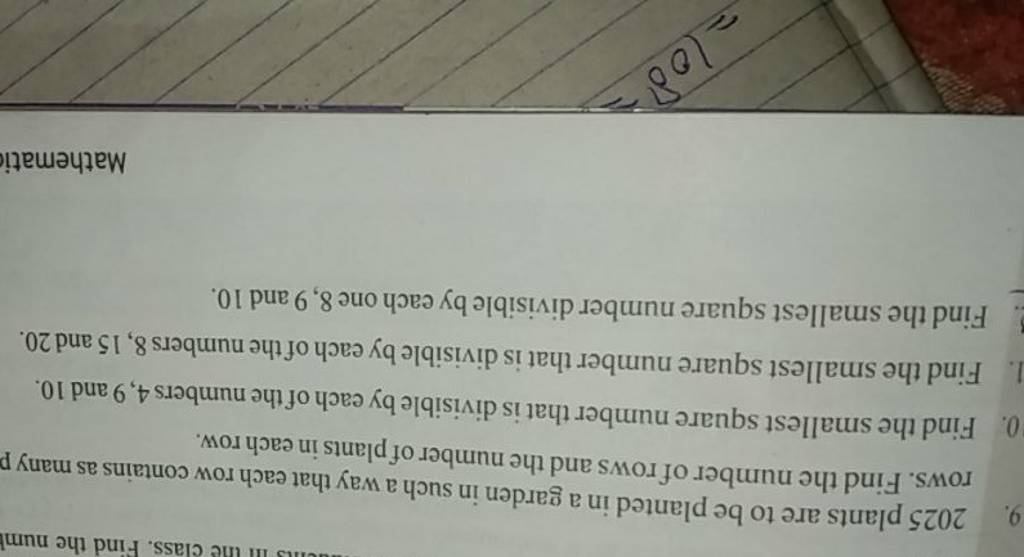 in the class. Find the numb
9. 2025 plants are to be planted in a garden in such a way that each row contains as many p
rows. Find the number of rows and the number of plants in each row.
10. Find the smallest square number that is divisible by each of the numbers 4, 9 and 10.
1. Find the smallest square number that is divisible by each of the numbers 8, 15 and 20.
Find the smallest square number divisible by each one 8, 9 and 10.
Mathematic
= 108 =